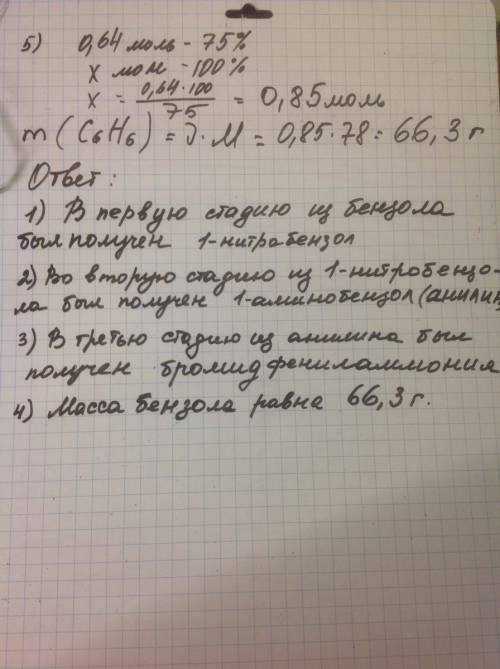 5) 0,64 моль - 75%
x мол - 100%
x = 0,64·100/75 = 0,85 мол
m(C₆H₆) = ν·M = 0,85·78 = 66,3 г
Ответ:
1) В первую стадию из бензола
был получен 1-нитрабензол
2) Во вторую стадию из 1-нитробензо-
ла был получен 1-аминобензол (анилин
3) В третью стадию из анилина был
получен бромид фениламмония
4) Масса бензола равна 66,3 г.